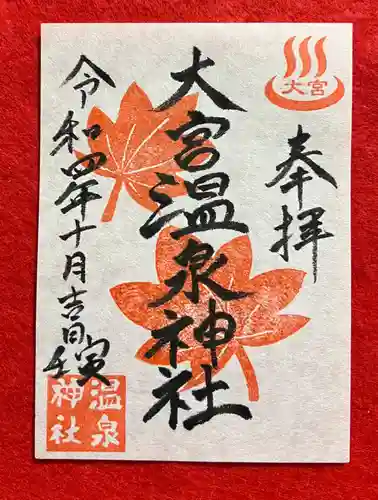 大宮
奉拝
大宮温泉神社
令和四年十月吉日
壬寅
温泉
神社